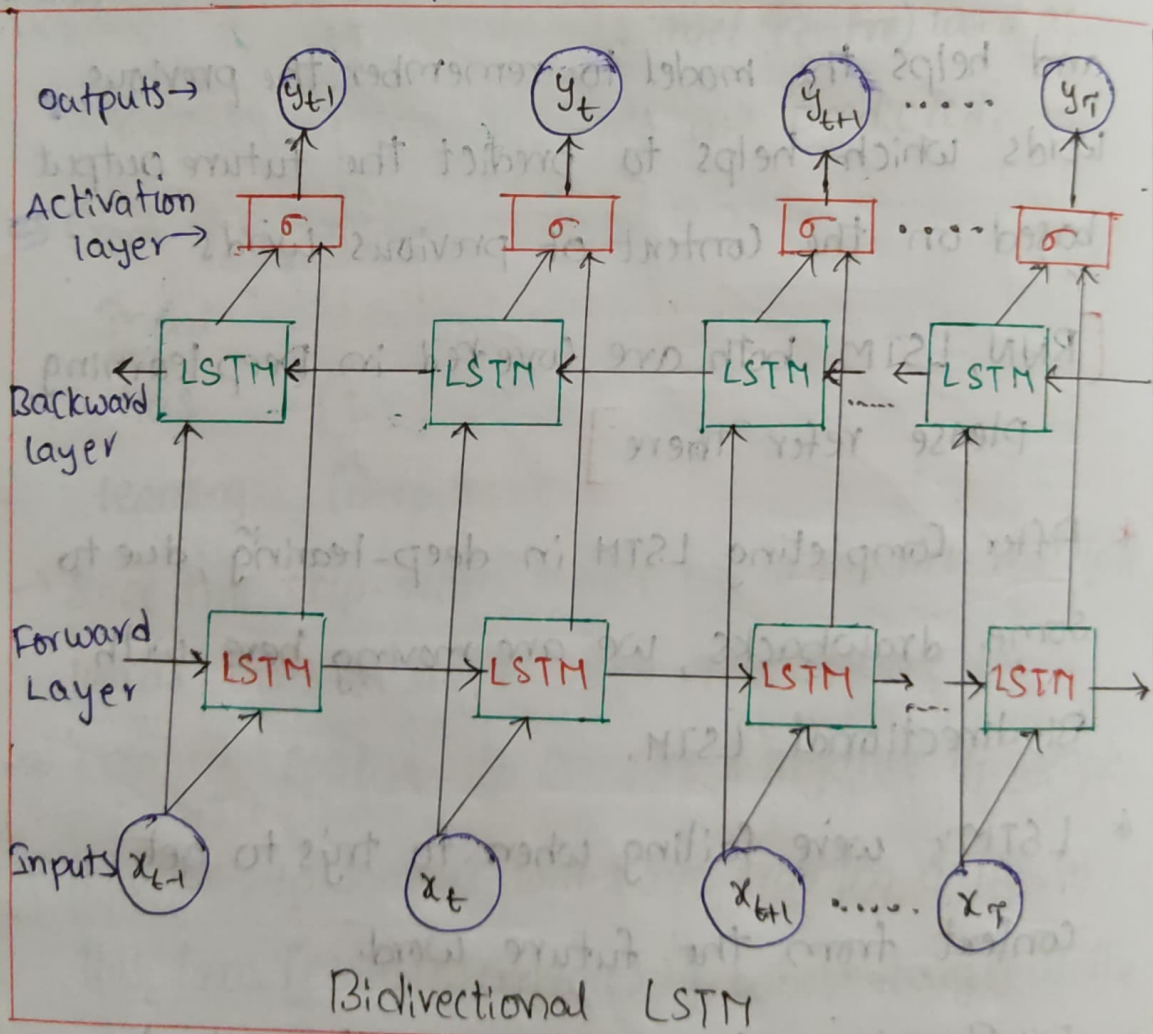 outputs→ y_t-1 y_t y_t+1 ..... y_T
Activation
layer→ σ σ σ ..... σ
LSTM LSTM LSTM ..... LSTM
Backward
layer
Forward
Layer LSTM LSTM LSTM ..... LSTM
Inputs x_t-1 x_t x_t+1 ..... x_T
Bidirectional LSTM